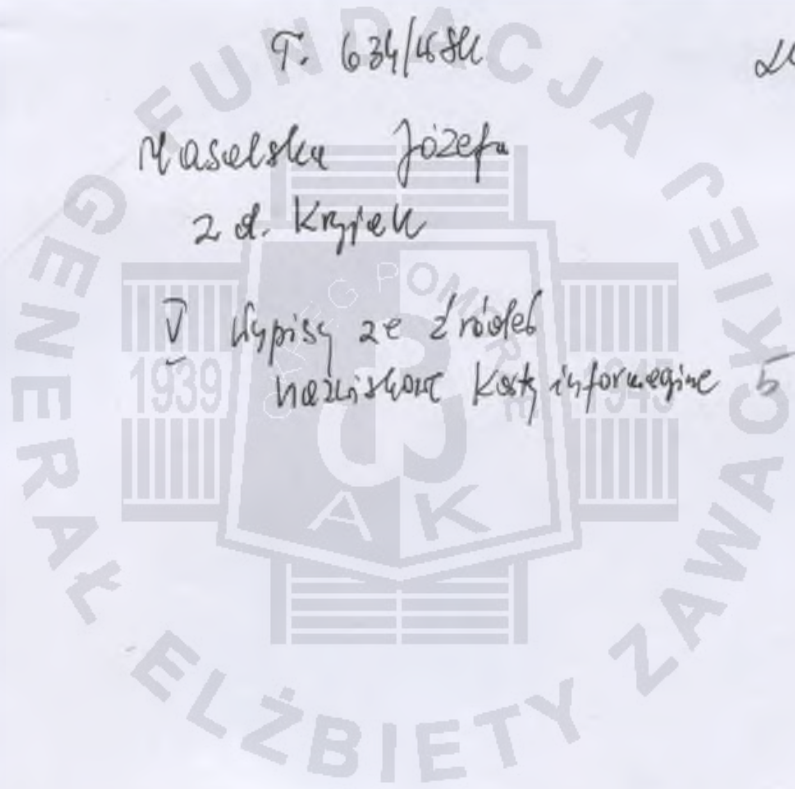 T. 634/WSK
Masalska Józefa
z d. Krzjek
V Wypisy ze źródeł
nazwiskowe karty informacyjne 5
FUNDACJA GENERAŁ ELŻBIETY ZAWACKIEJ
1939
1945
AK